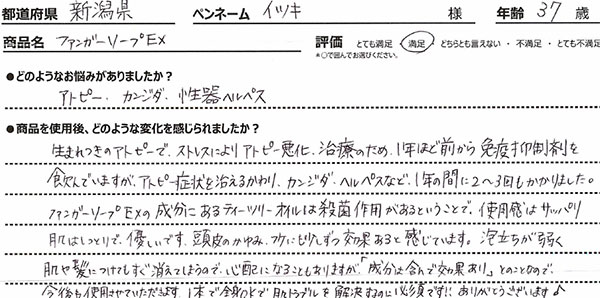 都道府県 新潟県 ペンネーム イツキ 様 年齢 37 歳
商品名 ファンガーソープEX 評価 とても満足 満足 ・ どちらとも言えない ・ 不満足 ・ とても不満足
*○で囲んでお選びください。
●どのようなお悩みがありましたか？
アトピー、カンジダ、性器ヘルペス
●商品を使用後、どのような変化を感じられましたか？
生まれつきのアトピーで、ストレスによりアトピー悪化、治療のため、1年ほど前から免疫抑制剤を
飲んでいますが、アトピー症状を治えるかわり、カンジダ、ヘルペスなど、1年の間に2〜3回もかかりました。
ファンガーソープEXの成分にあるティーツリーオイルは殺菌作用があるということで、使用感はサッパリ
肌はしっとりで、優しいです。頭皮のかゆみ、フケにも少しずつ効果あると感じています。泡立ちが弱く
肌や髪につけてもすぐ消えてしまうので、心配になることもありますが、「成分は含んで効果あり」とのことなので、
今後も使用させていただきます。1本で全身OKで肌トラブルを解決するのに必須です!!ありがとうございます♪